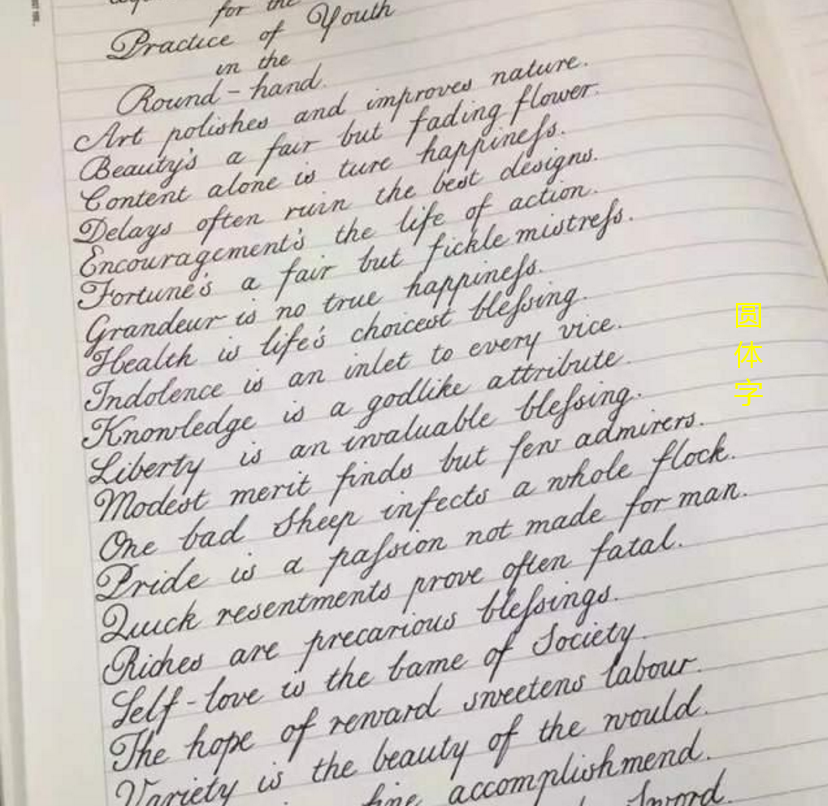 for the
Practice of Youth
in the
Round-hand.
Art polishes and improves nature.
Beauty's a fair but fading flower.
Content alone is ture happineſs.
Delays often ruin the best designs.
Encouragement's the life of action.
Fortune's a fair but fickle mistreſs.
Grandeur is no true happineſs.
Health is life's choicest bleſsing.
Indolence is an inlet to every vice.
Knowledge is a godlike attribute.
Liberty is an invaluable bleſsing.
Modest merit finds but few admirers.
One bad sheep infects a whole flock.
Pride is a paſsion not made for man.
Quick resentments prove often fatal.
Riches are precarious bleſsings.
Self-love is the bame of Society.
The hope of reward sweetens labour.
Variety is the beauty of the would.
fine accomplishmend.
Sword.
圆
体
字